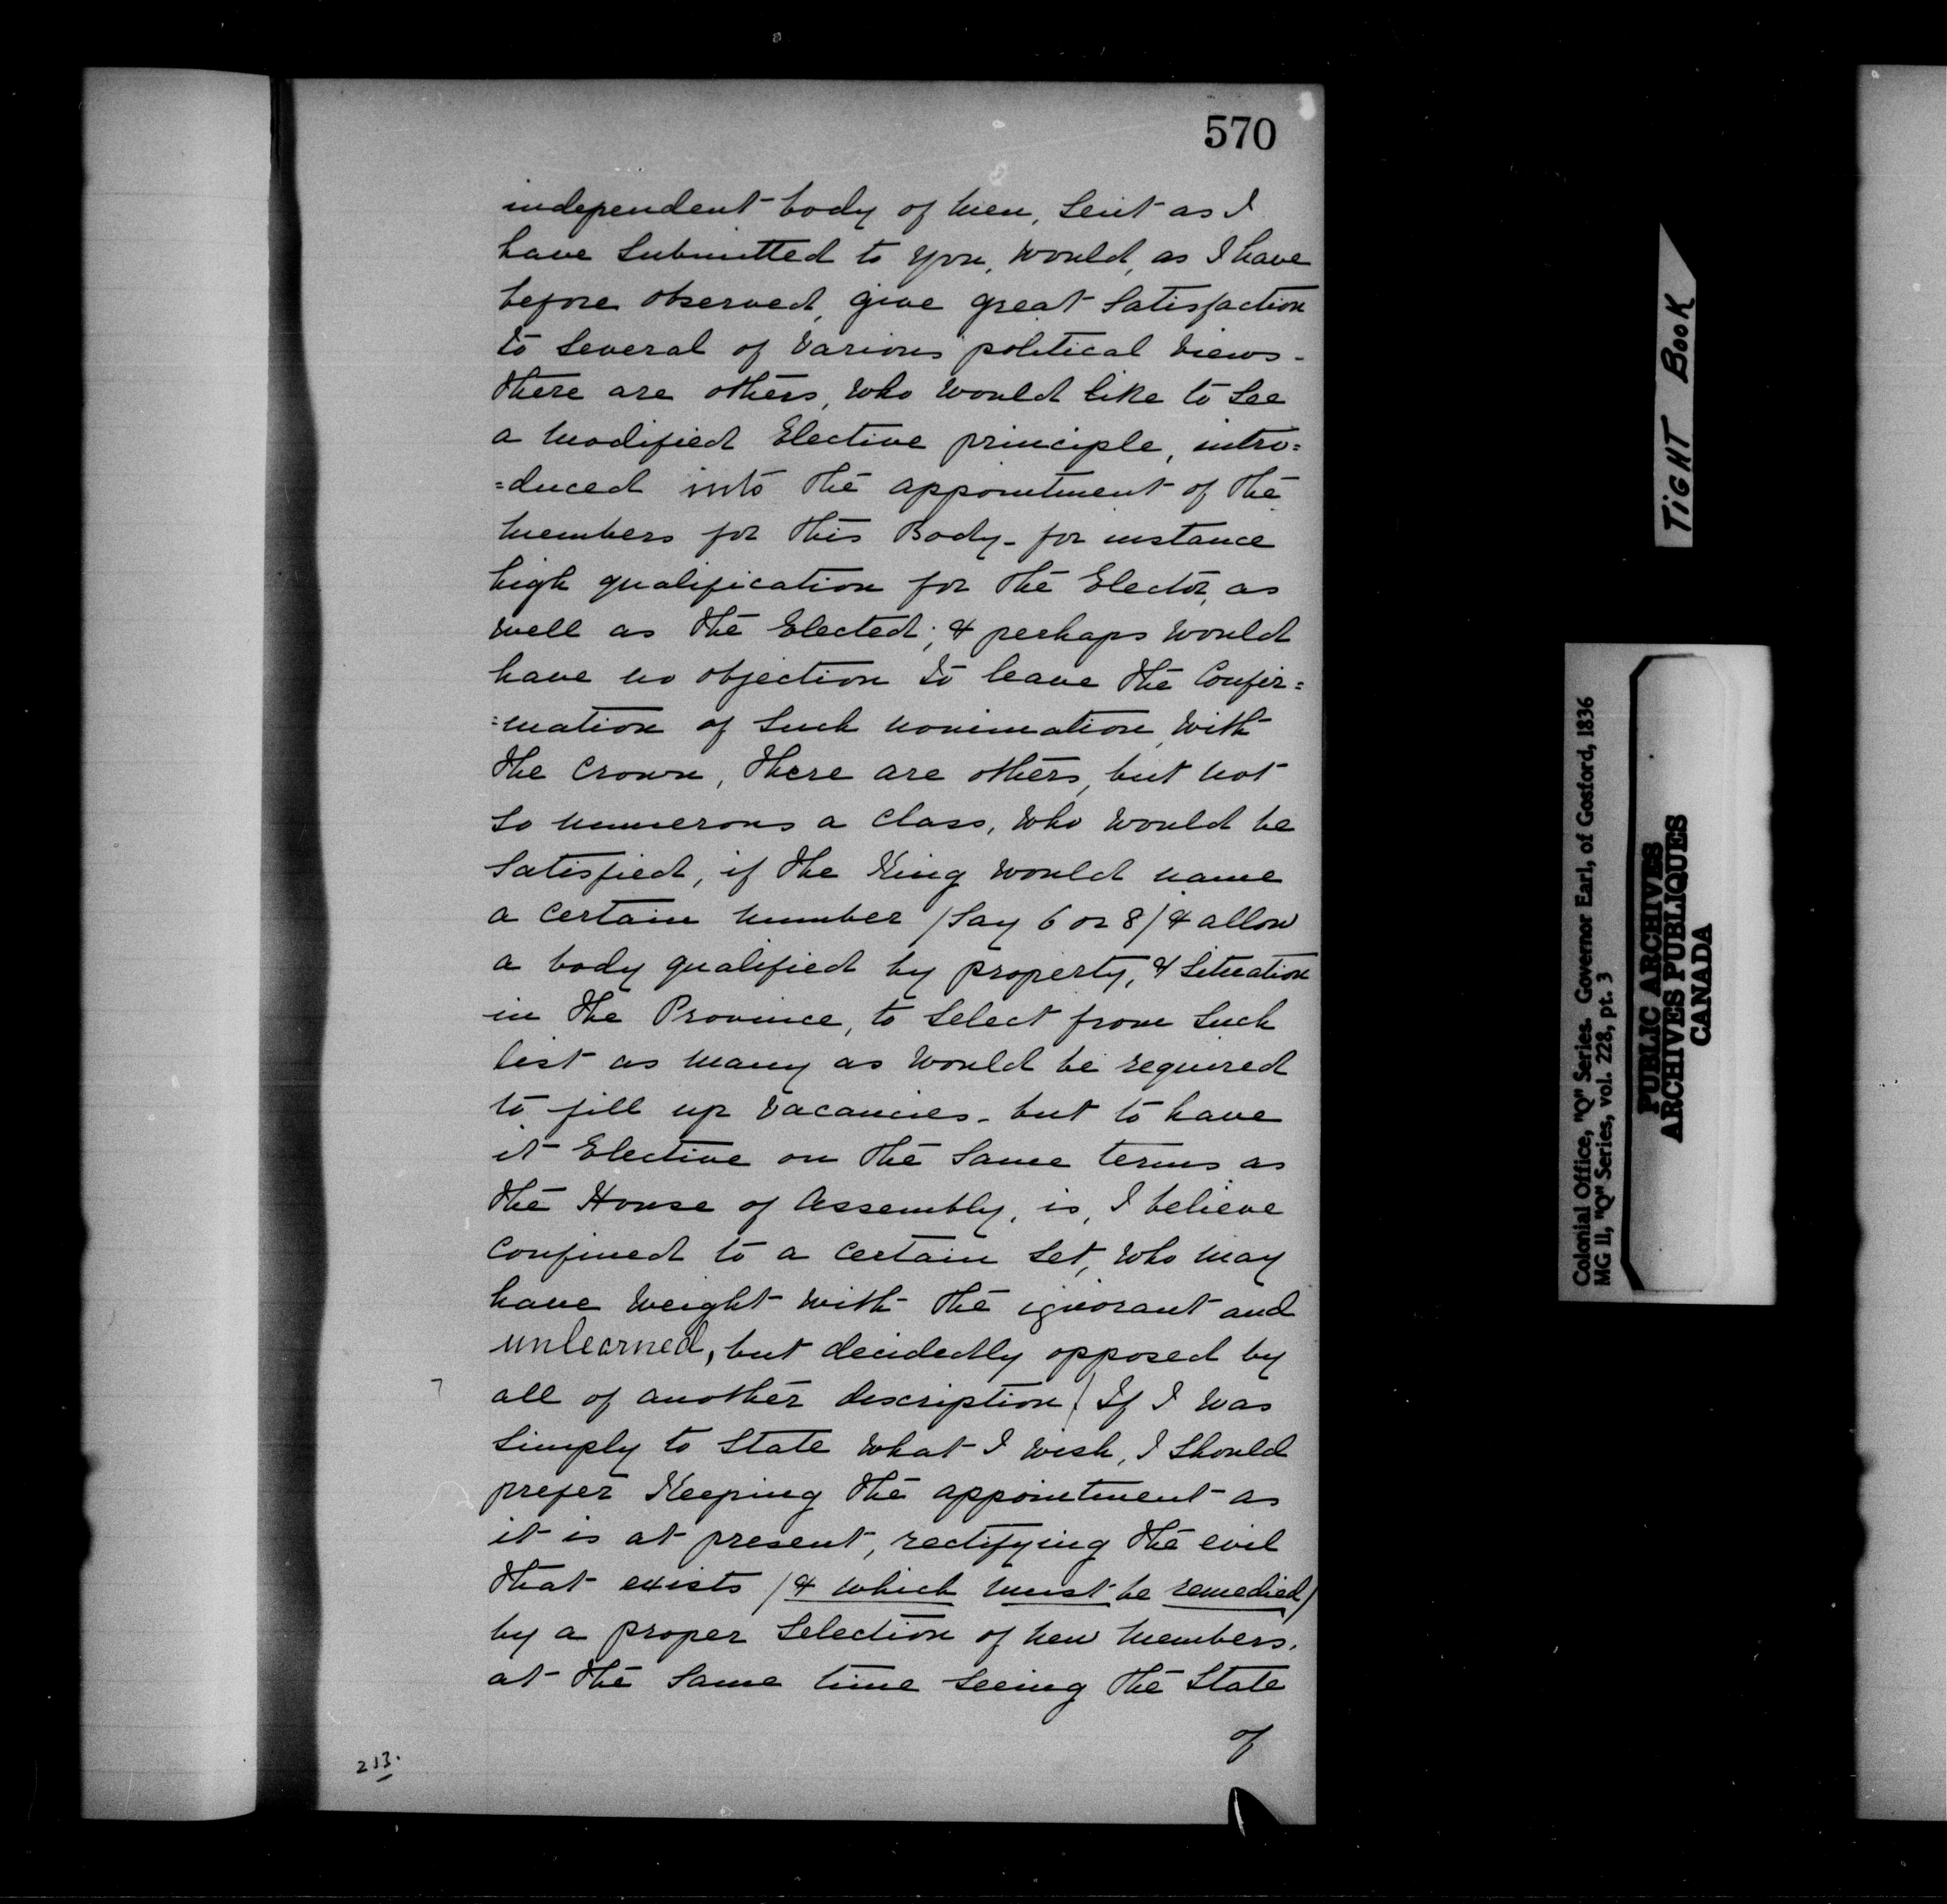 570
independent body of men, sent as I
have submitted to you, would, as I have
before observed, give great satisfaction
to several of various political views -
there are others, who would like to see
a modified Elective principle, intro=
=duced into the appointment of the
members for this Body - for instance
high qualification for the Elector, as
well as the Elected; & perhaps would
have no objection to leave the Confir=
=mation of such nomination, with
the Crown, there are others, but not
so numerous a class, who would be
satisfied, if the King would name
a certain number / say 6 or 8 / & allow
a body qualified by property, & situation
in the Province, to select from such
list as many as would be required
to fill up vacancies - but to have
it Elective on the same terms as
the House of Assembly, is, I believe
confined to a certain set, who may
have weight with the ignorant and
unlearned, but decidedly opposed by
all of another description / If I was
simply to state what I wish, I should
prefer keeping the appointment as
it is at present, rectifying the evil
that exists / & which must be remedied /
by a proper selection of new members.
at the same time seeing the State
of
213.
TIGHT BOOK
Colonial Office, "Q" Series. Governor Earl, of Gosford, 1836
MG 11, "Q" Series, vol. 228, pt. 3
PUBLIC ARCHIVES
ARCHIVES PUBLIQUES
CANADA